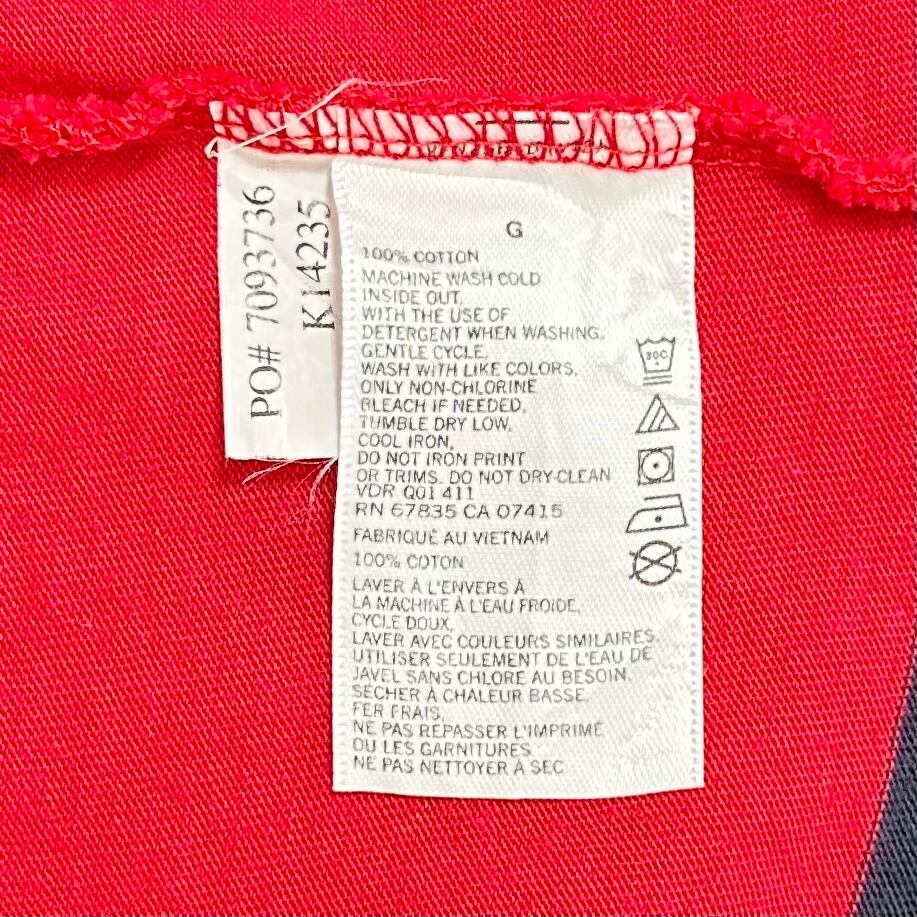 PO# 7093736
K14235
G
100% COTTON
MACHINE WASH COLD
INSIDE OUT,
WITH THE USE OF
DETERGENT WHEN WASHING,
GENTLE CYCLE,
WASH WITH LIKE COLORS,
ONLY NON-CHLORINE
BLEACH IF NEEDED,
TUMBLE DRY LOW,
COOL IRON,
DO NOT IRON PRINT
OR TRIMS. DO NOT DRY-CLEAN
VDR Q01 411
RN 67835 CA 07415
FABRIQUÉ AU VIETNAM
100% COTON
LAVER À L'ENVERS À
LA MACHINE À L'EAU FROIDE,
CYCLE DOUX,
LAVER AVEC COULEURS SIMILAIRES,
UTILISER SEULEMENT DE L'EAU DE
JAVEL SANS CHLORE AU BESOIN,
SÉCHER À CHALEUR BASSE,
FER FRAIS,
NE PAS REPASSER L'IMPRIMÉ
OU LES GARNITURES
NE PAS NETTOYER À SEC
30C